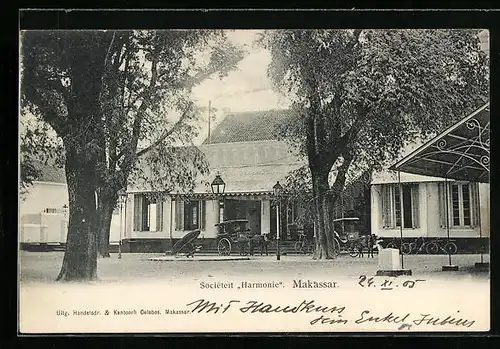 Societeit „Harmonie". Makassar. 24. XI. 05
Uitg. Handelsdr. & Kantoorh Celebes, Makassar.
Mit Handkuss
Dein Enkel Julius